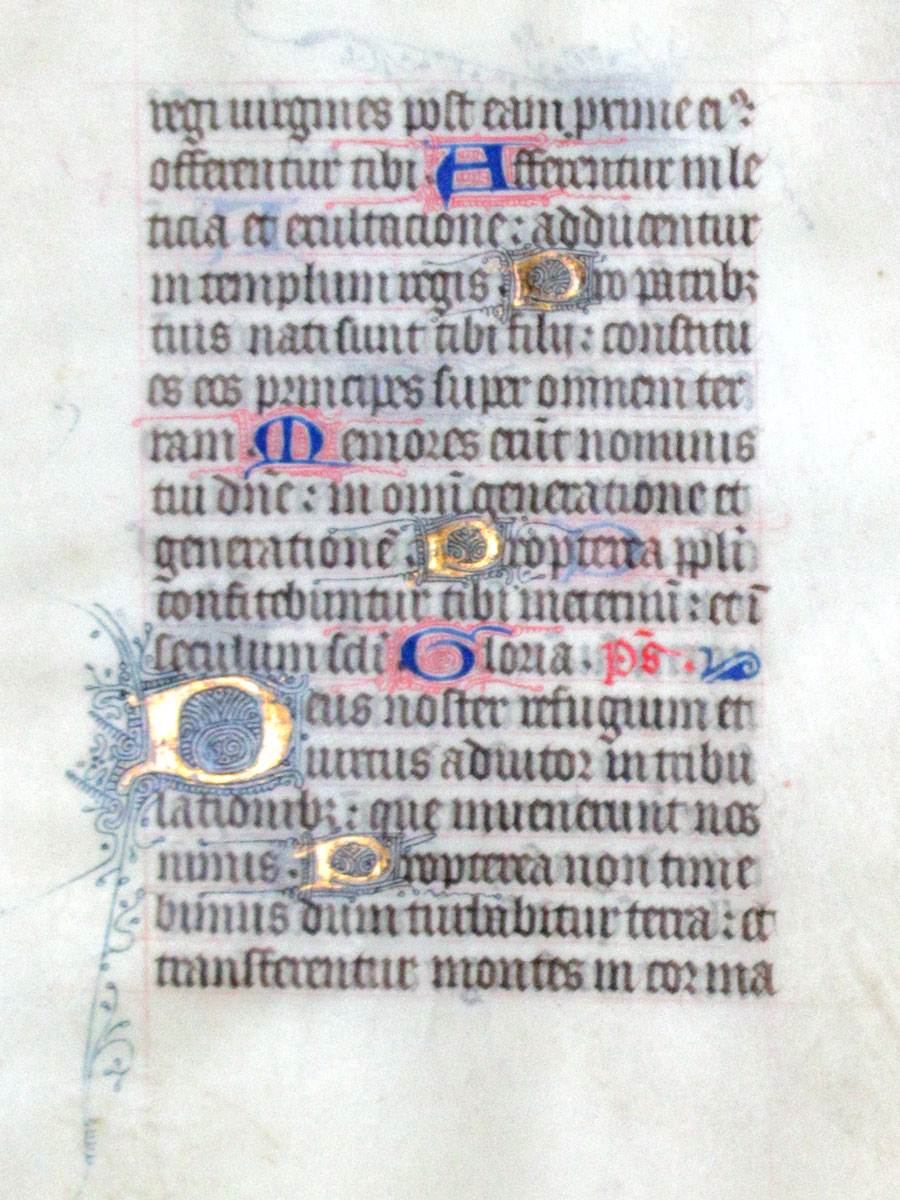 regi uirgines post eam proxime eiꝰ
offerentur tibi Afferentur in le
ticia et exultacione: adducentur
in templum regis Pro patribꝫ
tuis nati sunt tibi filii: constitu
es eos principes super omnem ter
ram Memores erūt nominis
tui dn̄e: in omī generatione et
generationē Propterea ppl̄i
confitebuntur tibi in eternū: et ī
seculum scl̄i Gloria. Ps̄.
Deus noster refugium et
uirtus adiutor in tribu
lationibꝫ: que inuenerunt nos
nimis. Propterea non time
bimus dum turbabitur terra: et
transferentur montes in cor ma